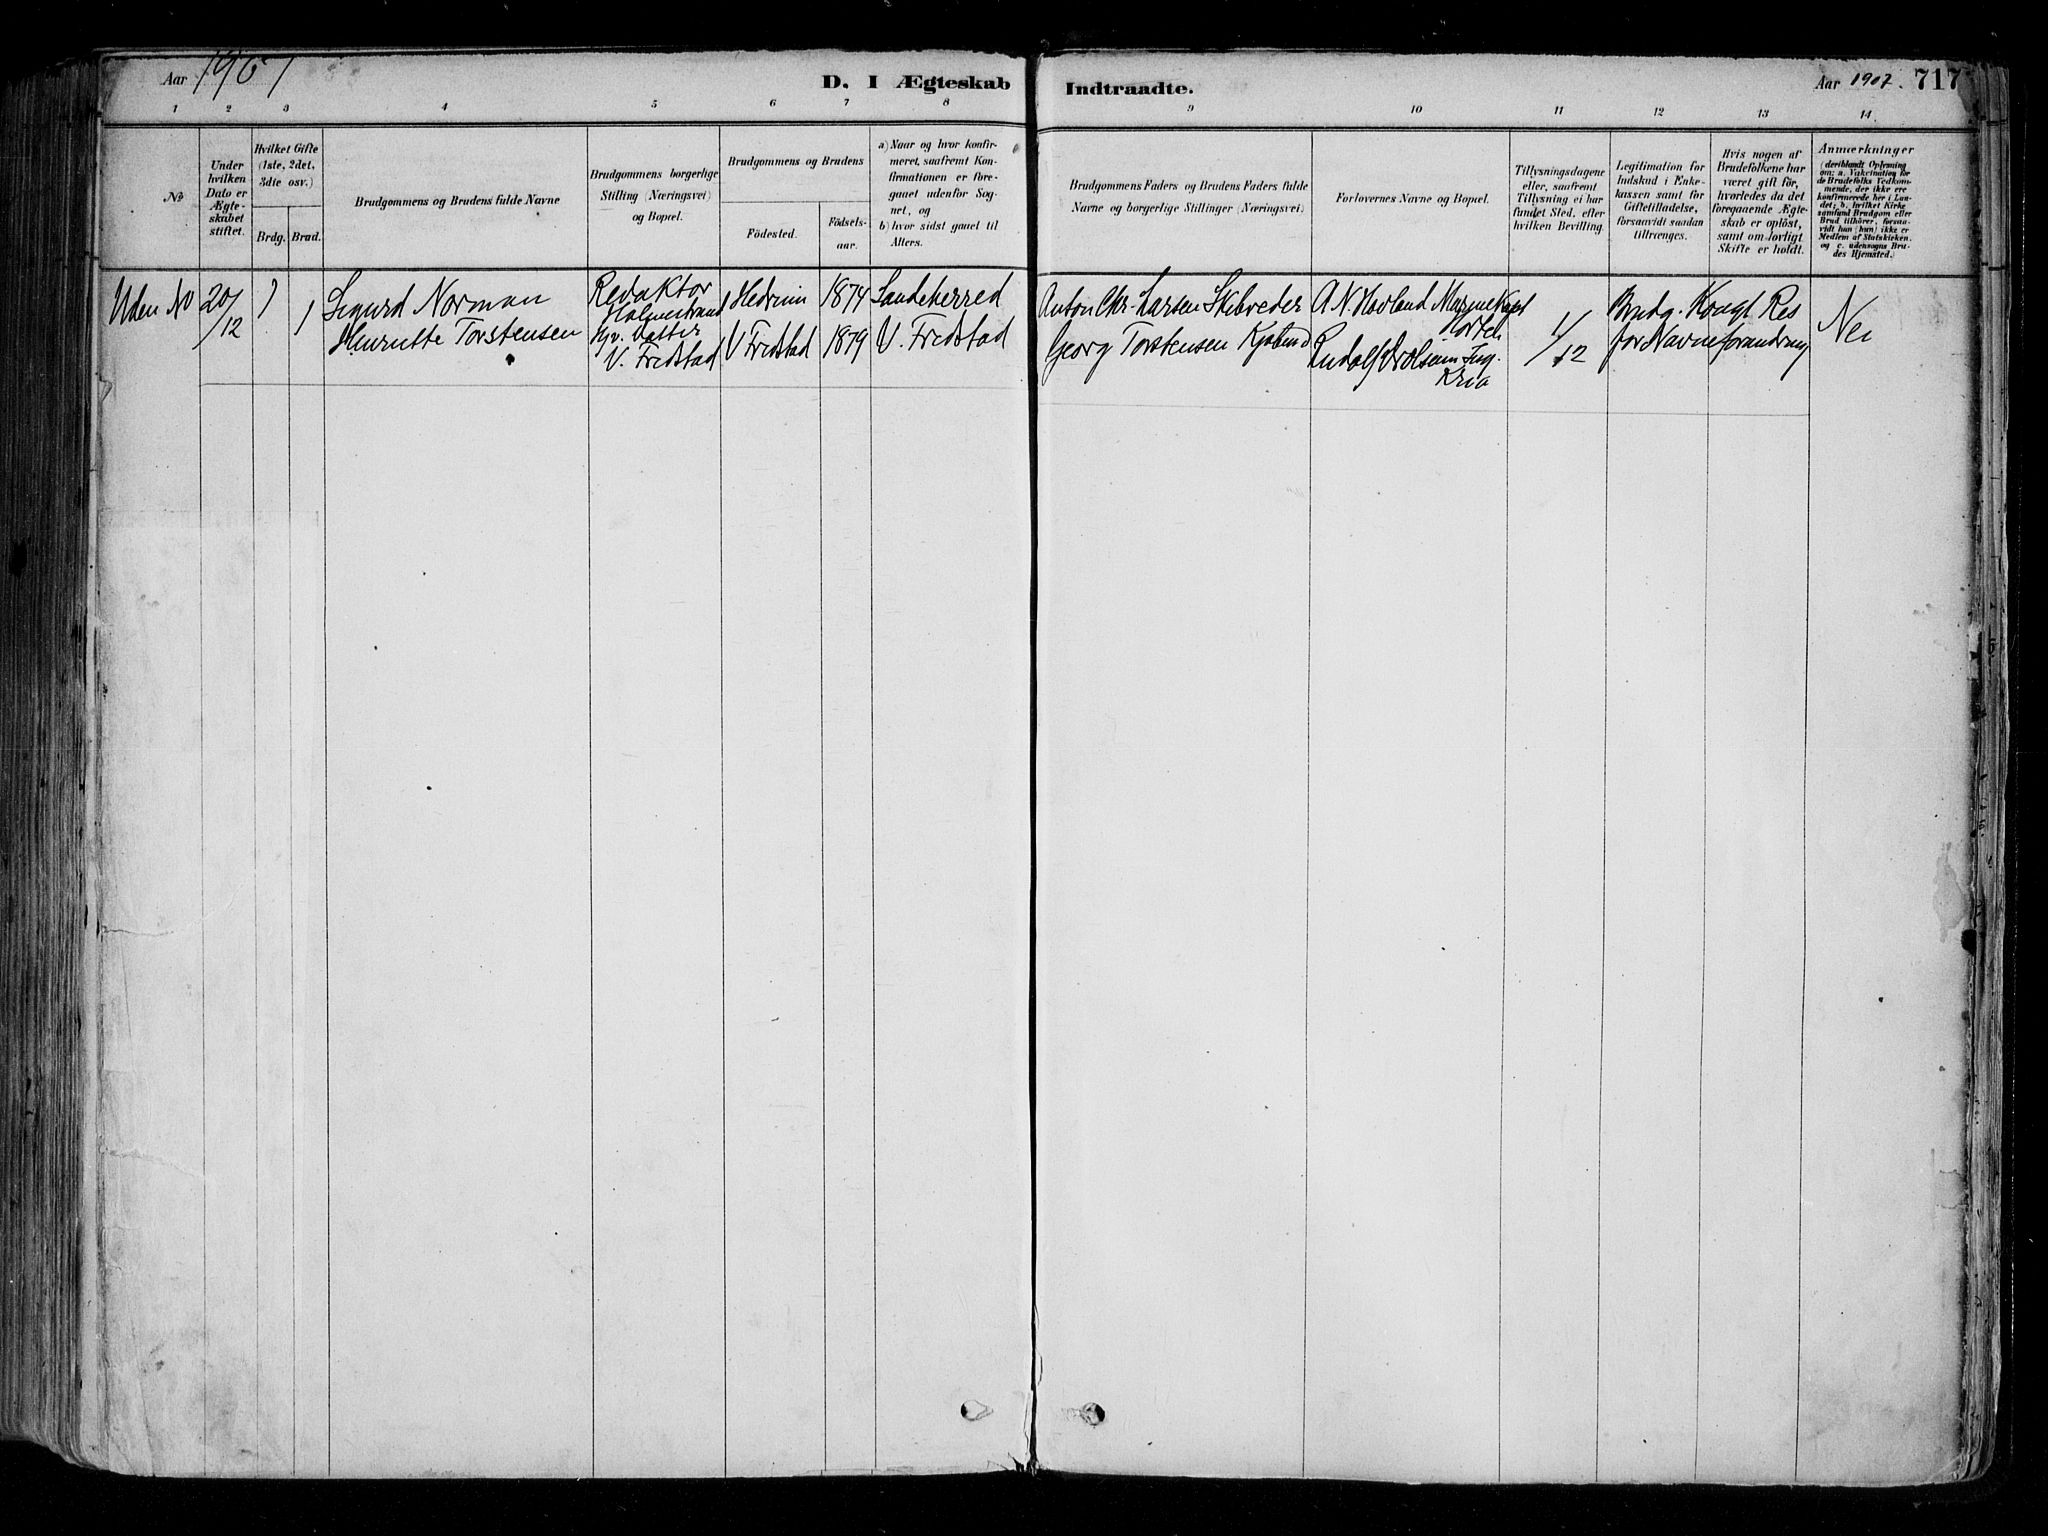 Aar 1907
D. I Ægteskab
Indtraadte.
Aar 1907. 717
1 2 3 4 5 6 7 8 9 10 11 12 13 14
№
Under hvilken Dato er Ægte-skabet stiftet.
Hvilket Gifte (1ste, 2det, 3die osv.)
Brdg. Brud.
Brudgommens og Brudens fulde Navne
Brudgommens borgerlige Stilling (Næringsvei) og Bopæl.
Brudgommens og Brudens
Födested.
Födsels-aar.
a) Naar og hvor konfir-meret, saafremt Kon-firmationen er fore-gaaet udenfor Sog-net, og
b) hvor sidst gaaet til Alters.
Brudgommens Faders og Brudens Faders fulde Navne og borgerlige Stillinger (Næringsvei)
Forlovernes Navne og Bopæl.
Tillysningsdagene eller, saafremt Tillysning ei har fundet Sted, efter hvilken Bevilling.
Legitimation for Indskud i Enke-kassen samt for Giftetilladelse, forsaavidt saadan tiltrænges.
Hvis nogen af Brudefolkene har været gift för, hvorledes da det foregaaende Ægte-skab er oplöst, samt om lovligt Skifte er holdt.
Anmærkninger
(deriblandt Oplysning om: a. Vakcination for de Brudefolks Vedkom-mende, der ikke ere konfirmerede her i Lan-det; b. hvilket Kirke-samfund Brudgom eller Brud tilhörer, forsaa-vidt han (hun) ikke er Medlem af Statskirken, og c. udensogns Bru-des Hjemsted.)
Uden No 20/12 1 1
Sigurd Norman
Henriette Torstensen
Redaktör
Holmestrand
Hjv. Datter
V. Fredstad
Hedrum 1874 Sandeherred
V Fredstad 1879 V. Fredstad
Anton Chr. Larsen
Georg Torstensen Kjöbmd
A N Hovland Marinekapt
Horten
Rudolf Ing.
Kria
1/12
Brudg. Kongl Res
for Navneforandring
Nei